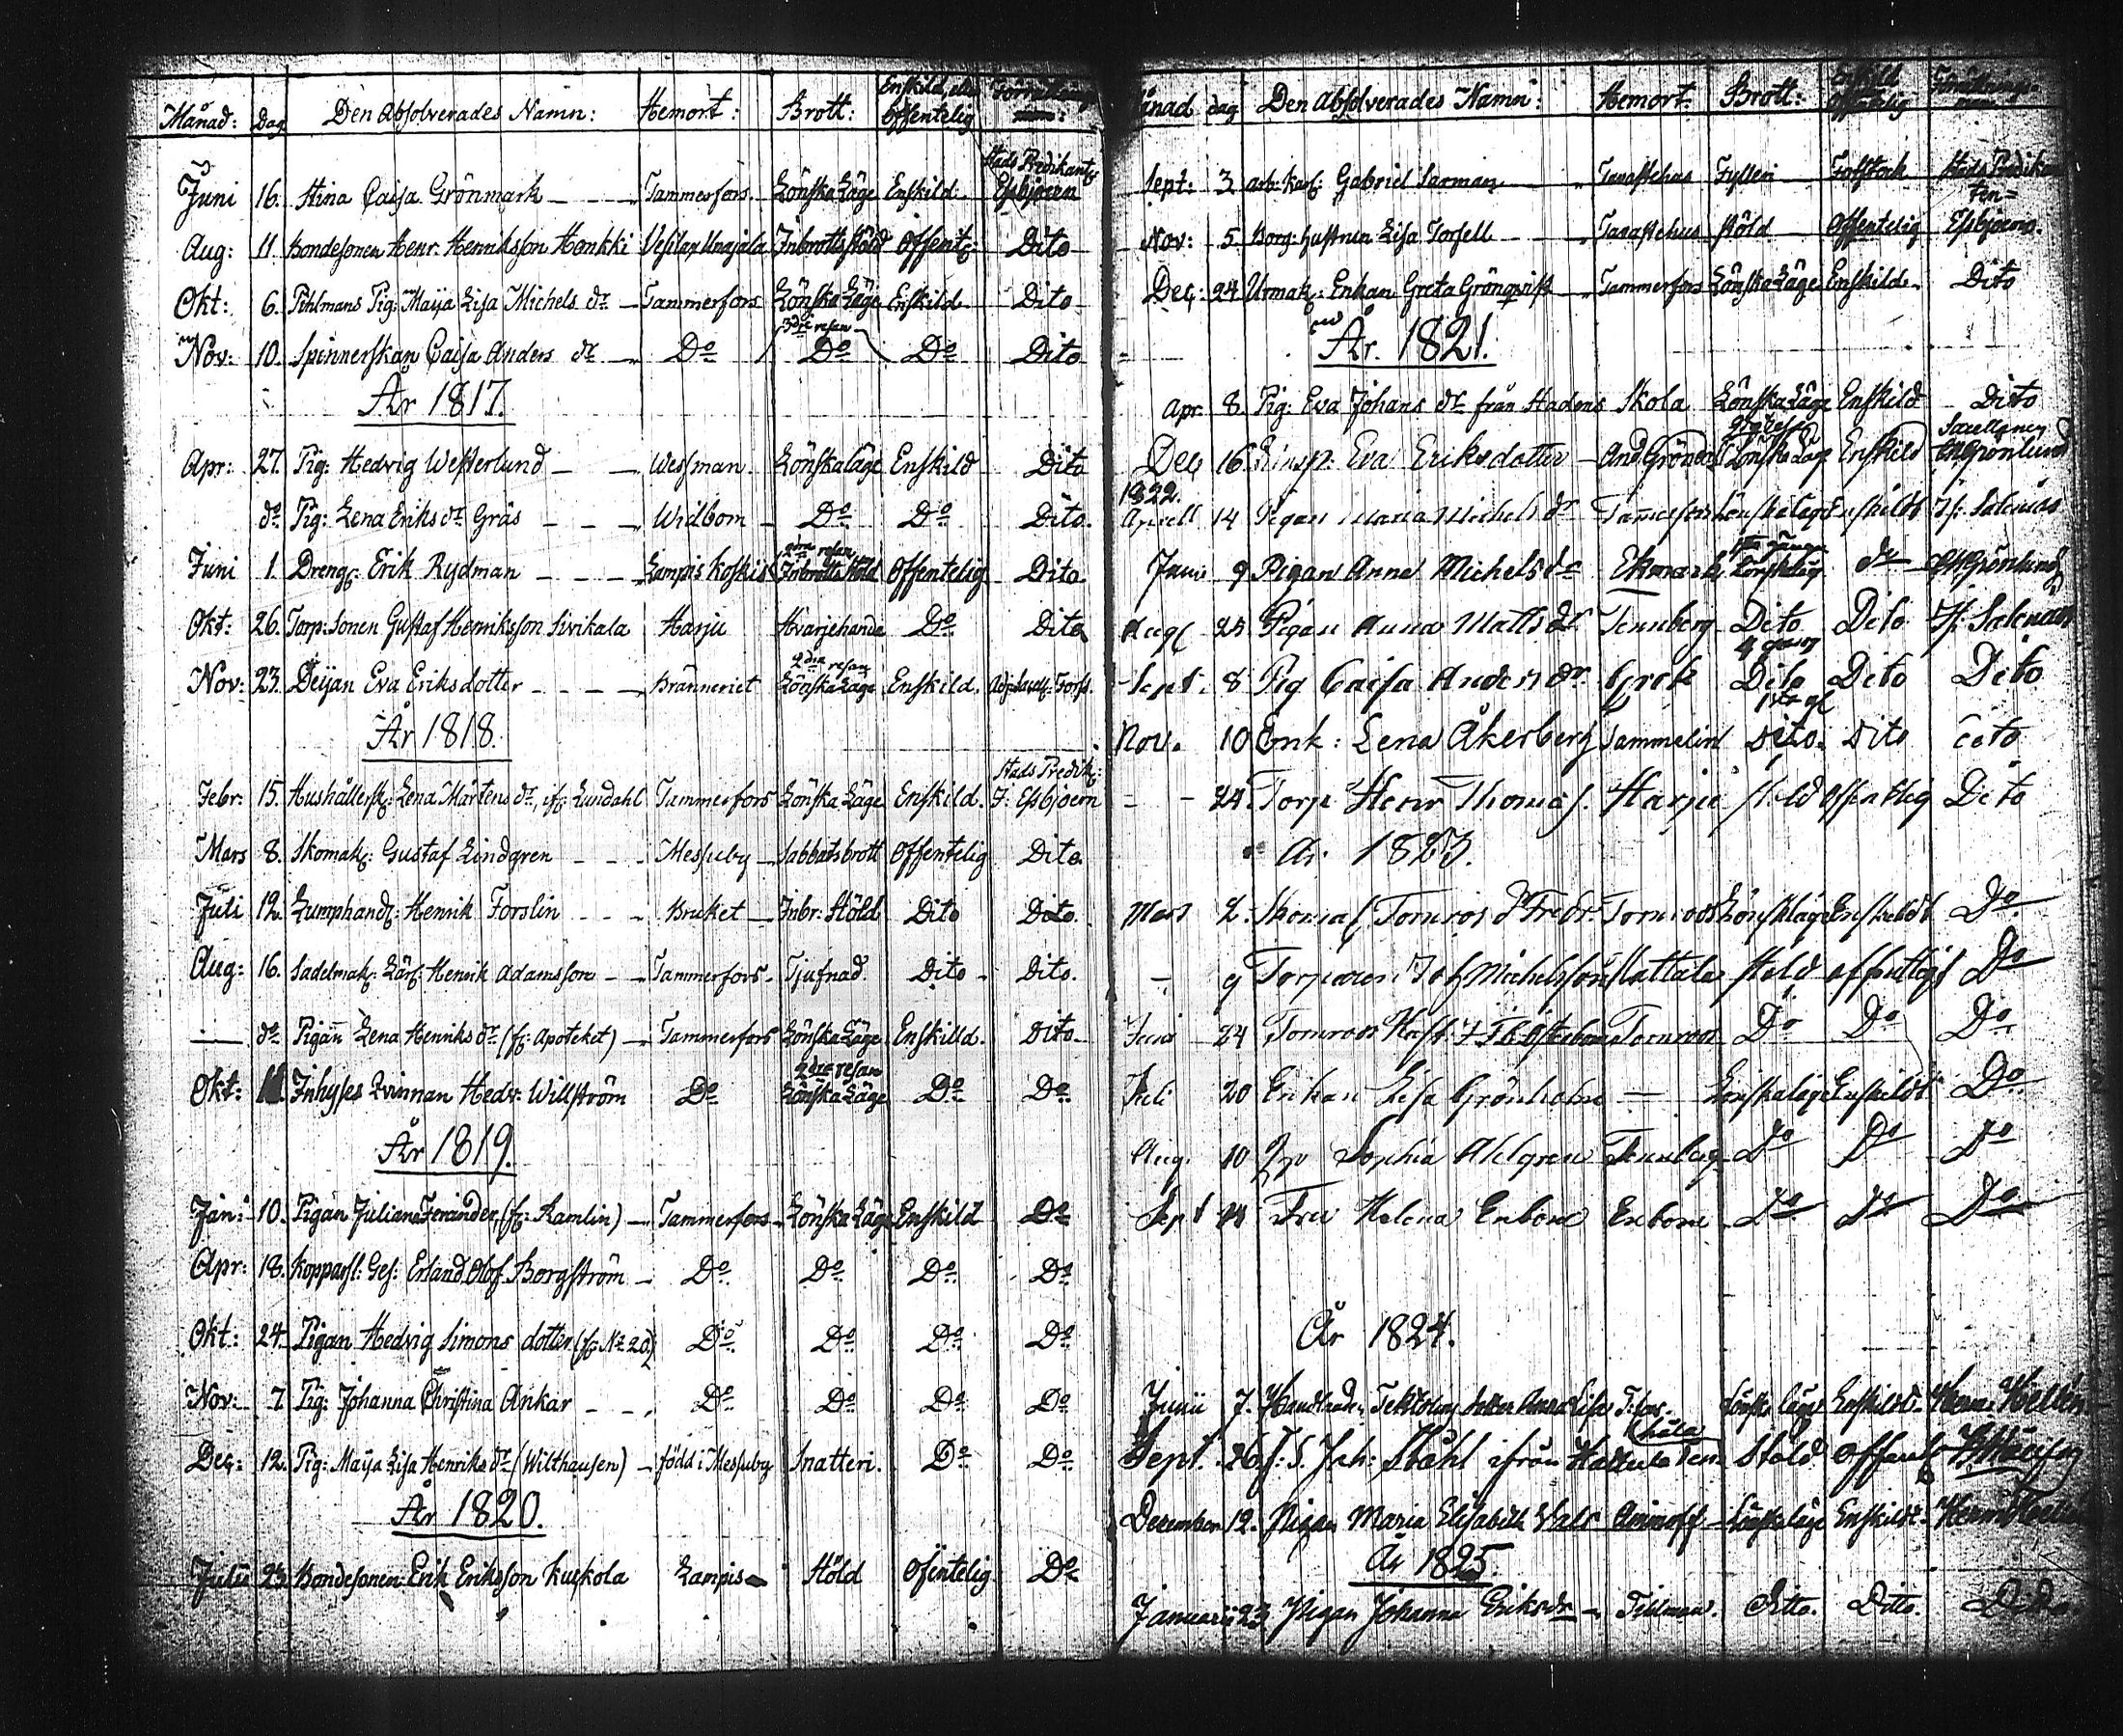 Månad: Dag Den Absolverades Namn: Hemort: Brott: Enskild, eller Offentelig
Stads Predikant:
Juni 16. Stina Caisa Grönmark Tammerfors. Lönska Läge Enskild Esbjoern
Aug: 11 Bondesonen Henr. Henriksson Honkki Vesilax Inbrotts stöld Offent: Dito
Okt: 6. Pig: Maija Lisa Michels dr Tammerfors Lönska Läge Enskild Dito
3dje resan
Nov: 10. Spinnerskan Caisa Anders dr Do Do Do Dito
År 1817.
Apr: 27. Pig: Hedvig Westerlund Wessman Lönskaläge Enskild Dito
do Pig: Lena Eriks dr Gräs Widbom Do Do Dito.
2dra resan
Juni 1. Dreng: Erik Rydman Lampis Koskis Inbrotts stöld Offentelig Dito
Okt: 26. Torp: Sonen Gustaf Henriksson Sivikala Harju Hvarjehanda Do Dito
2dra resan
Nov: 23. Deijan Eva Eriksdotter Bränneriet Lönska Läge Enskild.
År 1818.
Stads Predik:
Febr: 15. Hushållersk: Lena Mårtens dr, Lundahl Tammerfors Lönska Läge Enskild. J. Esbjoern
Mars 8. Skomak: Gustaf Lindgren Messuby Sabbatsbrott Offentelig Dito
Juli 12. Lumphandl: Henrik Forslin Bruket Inbr: Stöld Dito Dito.
Aug: 16. Sadelmak: Lärl: Henrik Adamsson Tammerfors. Tjufnad. Dito Dito.
do Pigan Lena Henriks dr (fr: Apoteket) Tammerfors Lönska Läge Enskilld. Dito
2dra resan
Okt: Inhyses Qvinnan Hedv: Willström Do Lönska Läge Do Do
År 1819.
Jan: 10. Pigan Juliana Feränder, (fr: Ramlin) Tammerfors Lönska Läge Enskild Do
Apr: 18. Kopparsl: Ges: Erland Olof Borgström Do Do Do Do
Okt: 24. Pigan Hedvig Simons dotter (fr: No 20.) Do Do Do Do
Nov: 7 Pig: Johanna Christina Ankar Do Do Do Do
Dec: 12. Pig: Maija Lisa Henriks dr (Wilthausen) född i Messuby Snatteri. Do Do
År 1820.
Julii 23. Bondesonen Erik Eriksson Kuskola Lampis Stöld Ofentelig Do
Månad dag Den Absolverades Namn: Hemort: Brott: Enskild Offentelig
Sept: 3 arb: Karl: Gabriel Sarman Tavastehus Fylleri Fotstock Stads Predikan
ten
Nov: 5 Borg: hustrun Lisa Torsell Tavastehus stöld Offentelig Esbjoern.
Dec: 24 Urmak: Enkan Greta Grönqvist Tammerfors Lönska Läge Enskilde Dito
År. 1821.
Apr. 8. Pig: Eva Johans dr från Stadens Skola Lönska Läge Enskild Dito
Dec 16. Eva Eriksdotter And Grönda Lönska Läg Enskild Grönlund
1822.
Aprill 14 Pigan Maria Michels dr Tammerfors Lönskaläge Enskildt Salenius
Junii 9 Pigan Anna Michels dr Ekmark Lönskaläg do Grönlund
Augs 25 Pigan Anna Matts dr Tennberg Dito Dito
4 gang
Sept. 8 Pig Caisa Anders dr Grek Dito Dito Dito
Nov. 10 Enk: Lena Åkerberg Tammelin Dito. Dito Dito
24. Torp Henr Thomas. Harju stöld Offentlig Dito
År 1823.
Mars 2. Thomas Tornros dr Fredr. Tornroos Lönskläge Enskildt Do
9 Torparen Joh Michelsson Hattala Stöld offentligt Do
Junii 24 Tornroos Tornroos Do Do Do
Juli 20 Enkan Lisa Grönholm Lönskaläge Enskildt Do
Aug. 10 Sophia Ahlgren Tennberg Do Do Do
Sept Fru Helena Enbom Enbom Do Do Do
År 1824.
Junii 7. dotter Anna Lisa T:fors Lönska läge Enskildt
Sept. 26 Joh: Ståhl ifrån Stöld offentl
December 12. Pigan Maria Elisabeth Aminoff Lönskaläge Enskildt
År 1825.
Januarii 23 Pigan Johanna Eriksdr Tillman. Ditto. Ditto.